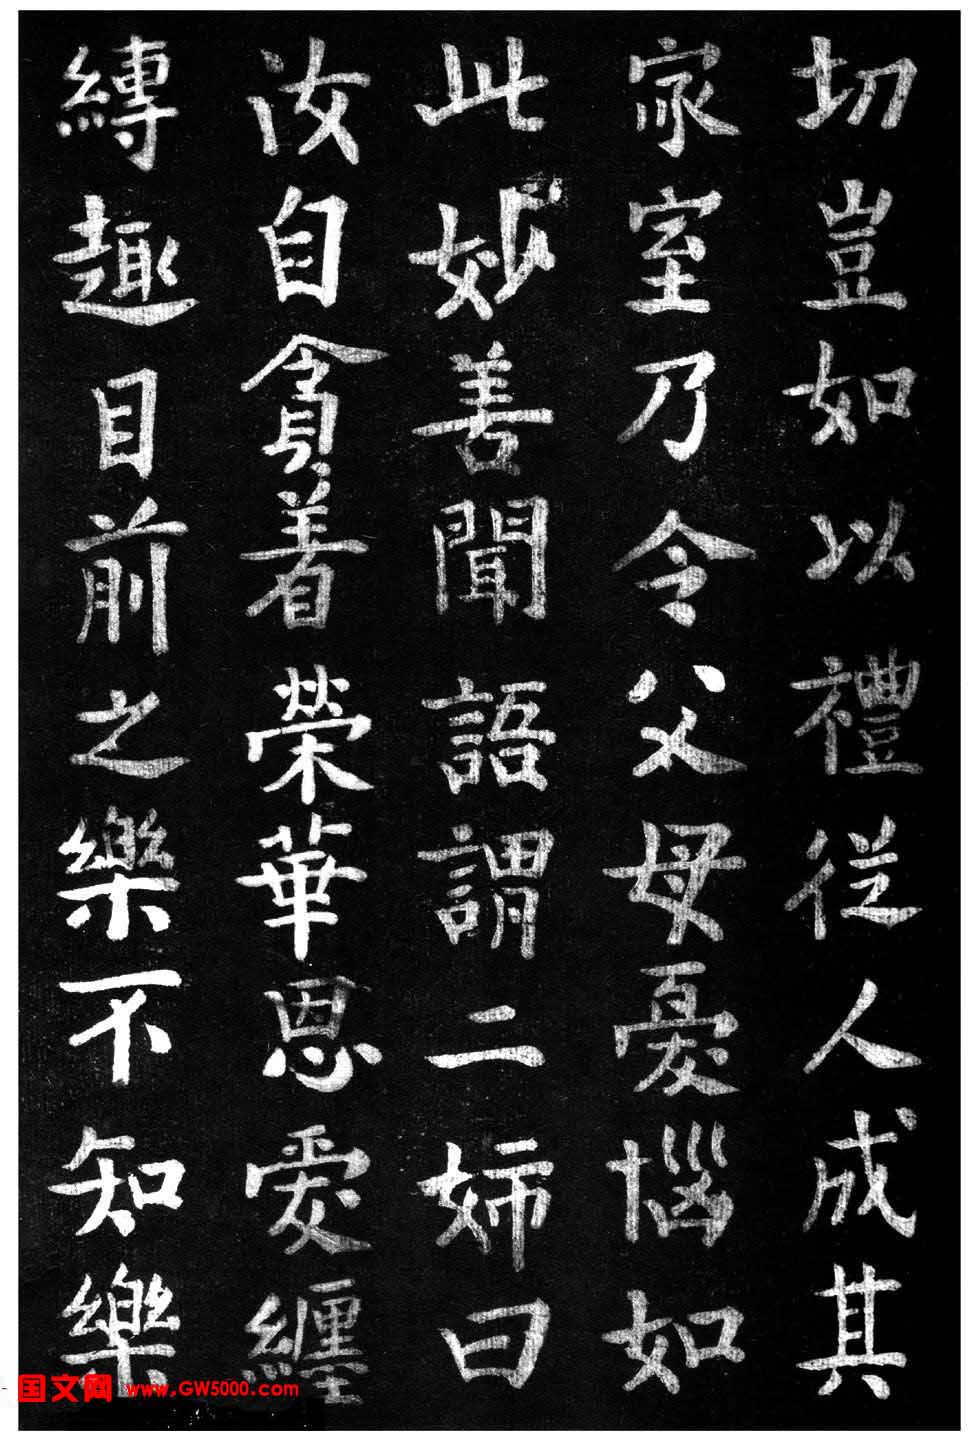 切豈如以禮從人成其
家室乃令父母憂惱如
此妙善聞語謂二婦曰
汝自貪着榮華恩愛纏
縛趣目前之樂不知樂
国文网 www.GW5000.com